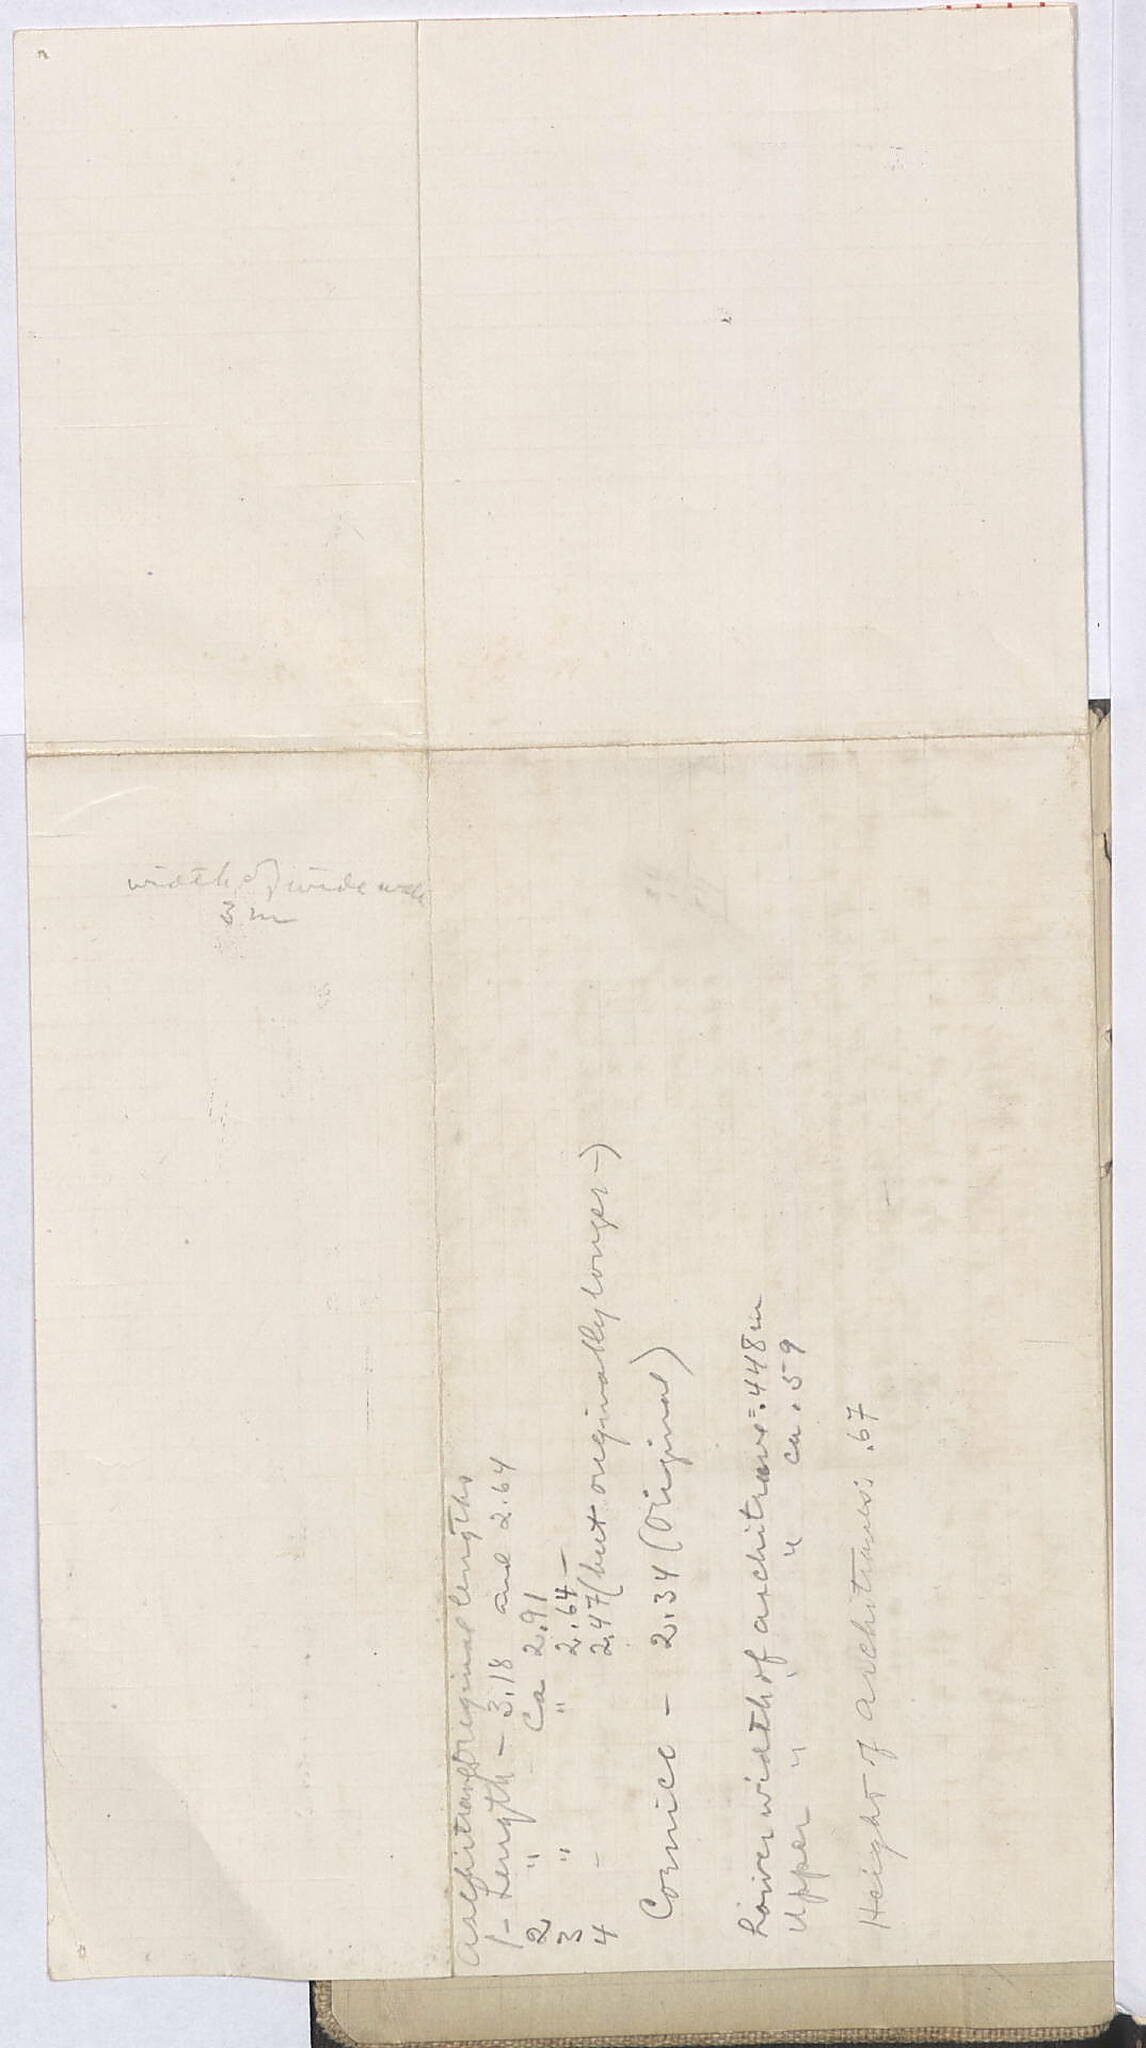 width of wide wall
Architraves Original lengths
1 - Length - 3.18 and 2.64
2 " Ca 2.91
3 " " 2.64 -
4 - 2.47 (but originally longer -)
Cornice - 2.34 (Original)
Lower width of architrave = .448 m
Upper " " " ca .59
Height of architraves: .67